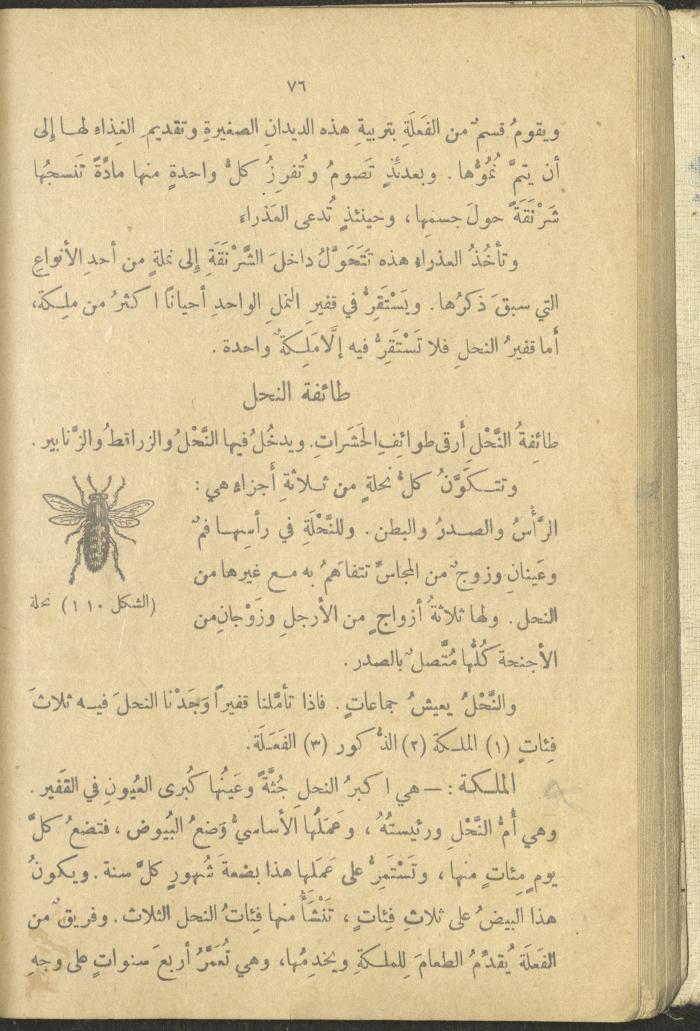 ٧٦
ويقومُ قسمٌ من الفَعَلَةِ بتربيةِ هذه الديدانِ الصغيرةِ وتقديمِ الغِذاءِ لها إلى
أن يتمَّ نُمُوُّها. وبعدئذٍ تَصومُ وتُفرِزُ كلُّ واحدةٍ منها مادَّةً تَنسجُها
شَرْنَقَةً حولَ جسمِها، وحينئذٍ تُدعى العَذراءَ
وتأخُذُ العذراءِ هذه تَتَحَوَّلُ داخلَ الشَّرْنَقَةِ إلى نملةٍ من أحدِ الأنواعِ
التي سبقَ ذكرُها. ويَسْتَقِرُّ في قفيرِ النملِ الواحدِ أحيانًا اكثرُ من ملِكة،
أما قفيرُ النحلِ فلا تَسْتَقِرُّ فيه إلَّا مَلِكةٌ واحدة.
طائفة النحل
طائِفةُ النَّحْلِ أرقى طوائفِ الحَشَراتِ. ويدخُلُ فيها النَّحْلُ والزراقطُ والزَّنابير.
وتتكوَّنُ كلُّ نحلةٍ من ثلاثةِ أجزاءٍ هي:
الرَّأسُ والصدرُ والبطن. وللنَّحْلَةِ في رأسِها فمٌ
وعَينانِ وزوجٌ من المجاسِّ تتفاهَمُ به مع غيرها من
النحل. ولها ثلاثةُ أزواجٍ من الأرجلِ وزَوْجانِ من
الأجنحة كُلُّها مُتَّصلٌ بالصدر.
(الشكل ١١٠) نحلة
والنَّحْلُ يعيشُ جماعاتٍ. فاذا تأمَّلنا قفيراً وَجَدْنا النحلَ فيه ثلاثَ
فِئاتٍ (١) الملكة (٢) الذُّكور (٣) الفَعَلَة.
الملكة: — هي اكبرُ النحلِ جُثَّةً وعَينُها كُبرى العُيونِ في القَفير.
وهي أُمُّ النَّحْلِ ورئيستُهُ، وعَمَلُها الأساسيُّ وَضعُ البُيوض، فتضعُ كلَّ
يومٍ مِئاتٍ منها، وتَسْتَمِرُّ على عَمَلها هذا بضعةَ شُهورٍ كلَّ سنة. ويكونُ
هذا البيضُ على ثلاثِ فِئاتٍ، تَنْشَأُ منها فِئاتُ النحل الثلاث. وفريقٌ من
الفَعَلَة يُقدِّمُ الطعامَ لِلملكةِ ويخدِمُها، وهي تُعَمَّرُ أربعَ سنواتٍ على وجهِ